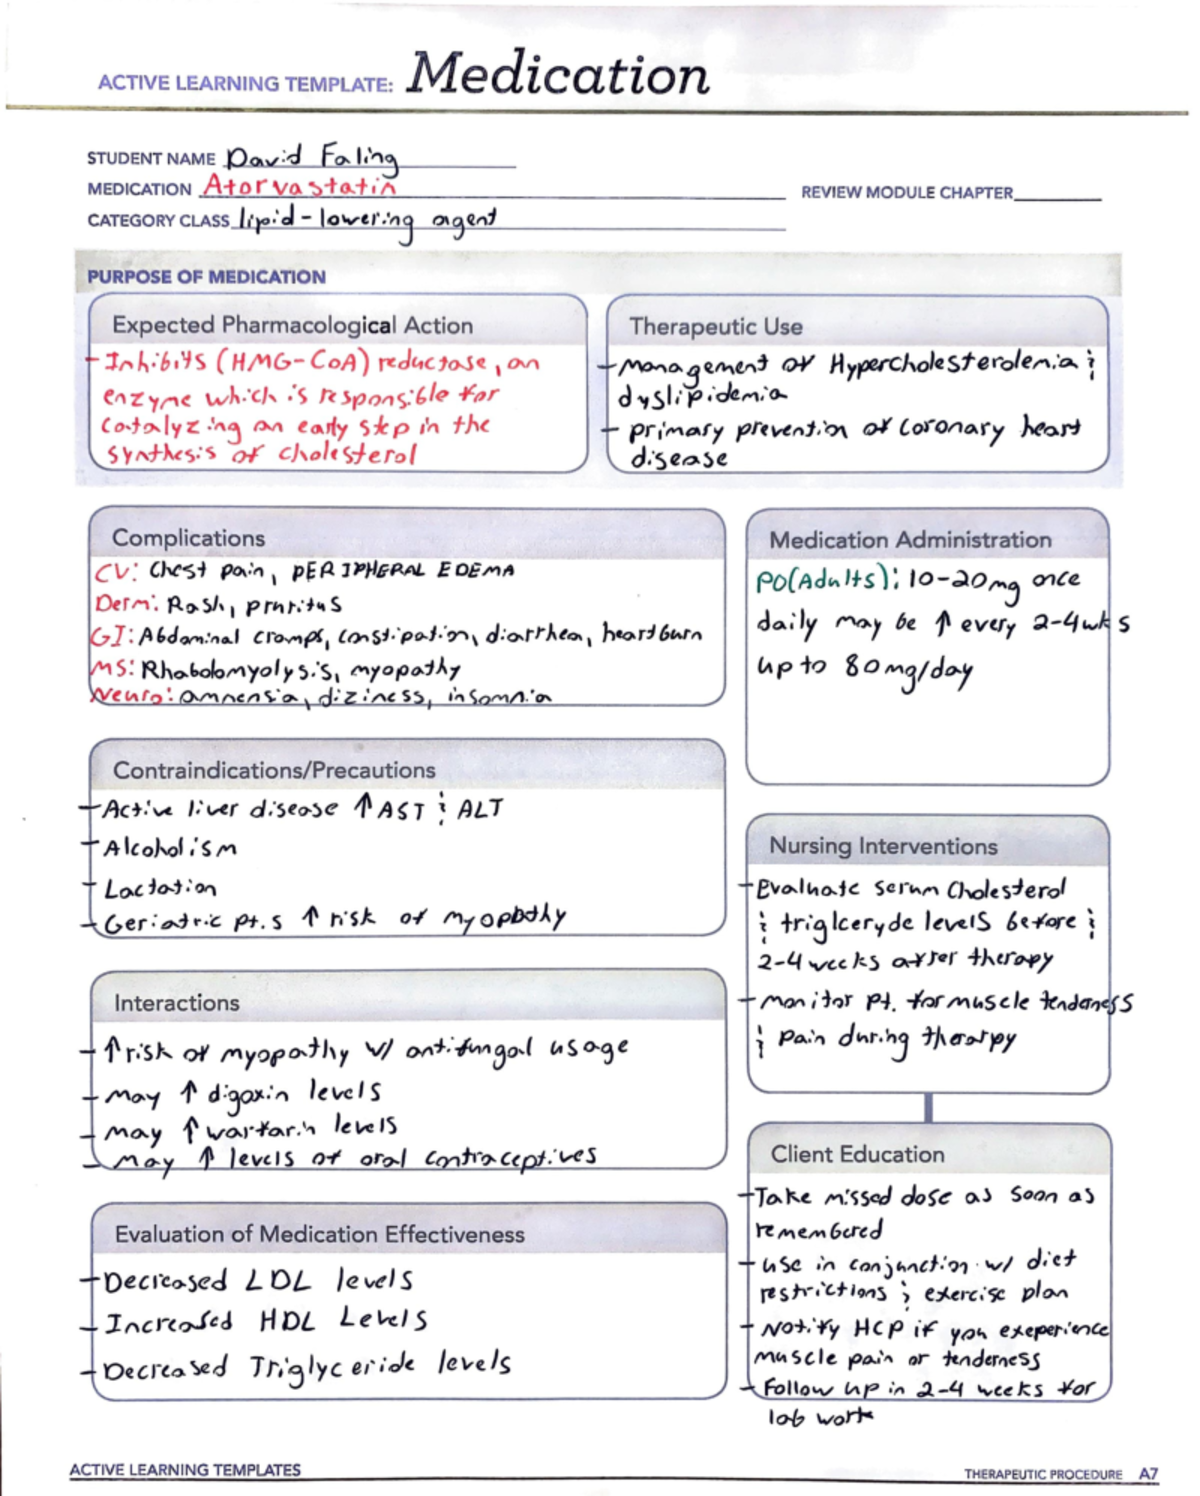 ACTIVE LEARNING TEMPLATE: Medication
STUDENT NAME David Faling
MEDICATION Atorvastatin
REVIEW MODULE CHAPTER
CATEGORY CLASS lipid-lowering agent
PURPOSE OF MEDICATION
Expected Pharmacological Action
- Inhibits (HMG-CoA) reductase, an
enzyme which is responsible for
catalyzing an early step in the
synthesis of cholesterol
Therapeutic Use
- management of Hypercholesterolemia &
dyslipidemia
- primary prevention of coronary heart
disease
Complications
CV: Chest pain, PERIPHERAL EDEMA
Derm: Rash, pruritus
GI: Abdominal cramps, constipation, diarrhea, heartburn
MS: Rhabolomyolysis, myopathy
Neuro: amnensia, diziness, insomnia
Medication Administration
PO(Adults): 10-20mg once
daily may be ↑ every 2-4wks
up to 80mg/day
Contraindications/Precautions
- Active liver disease ↑ AST & ALT
- Alcoholism
- Lactation
- Geriatric pt.s ↑ risk of myopathy
Nursing Interventions
- Evaluate serum Cholesterol
& triglceryde levels before &
2-4 weeks after therapy
- monitor pt. for muscle tenderness
& pain during therarpy
Interactions
- ↑ risk of myopathy w/ antifungal usage
- may ↑ digoxin levels
- may ↑ warfarin levels
- may ↑ levels of oral contraceptives
Client Education
- Take missed dose as soon as
remembered
- use in conjunction w/ diet
restrictions & exercise plan
- Notify HCP if you exeperience
muscle pain or tenderness
- Follow up in 2-4 weeks for
lab work
Evaluation of Medication Effectiveness
- Decreased LDL levels
- Increased HDL Levels
- Decreased Triglyceride levels
ACTIVE LEARNING TEMPLATES
THERAPEUTIC PROCEDURE A7